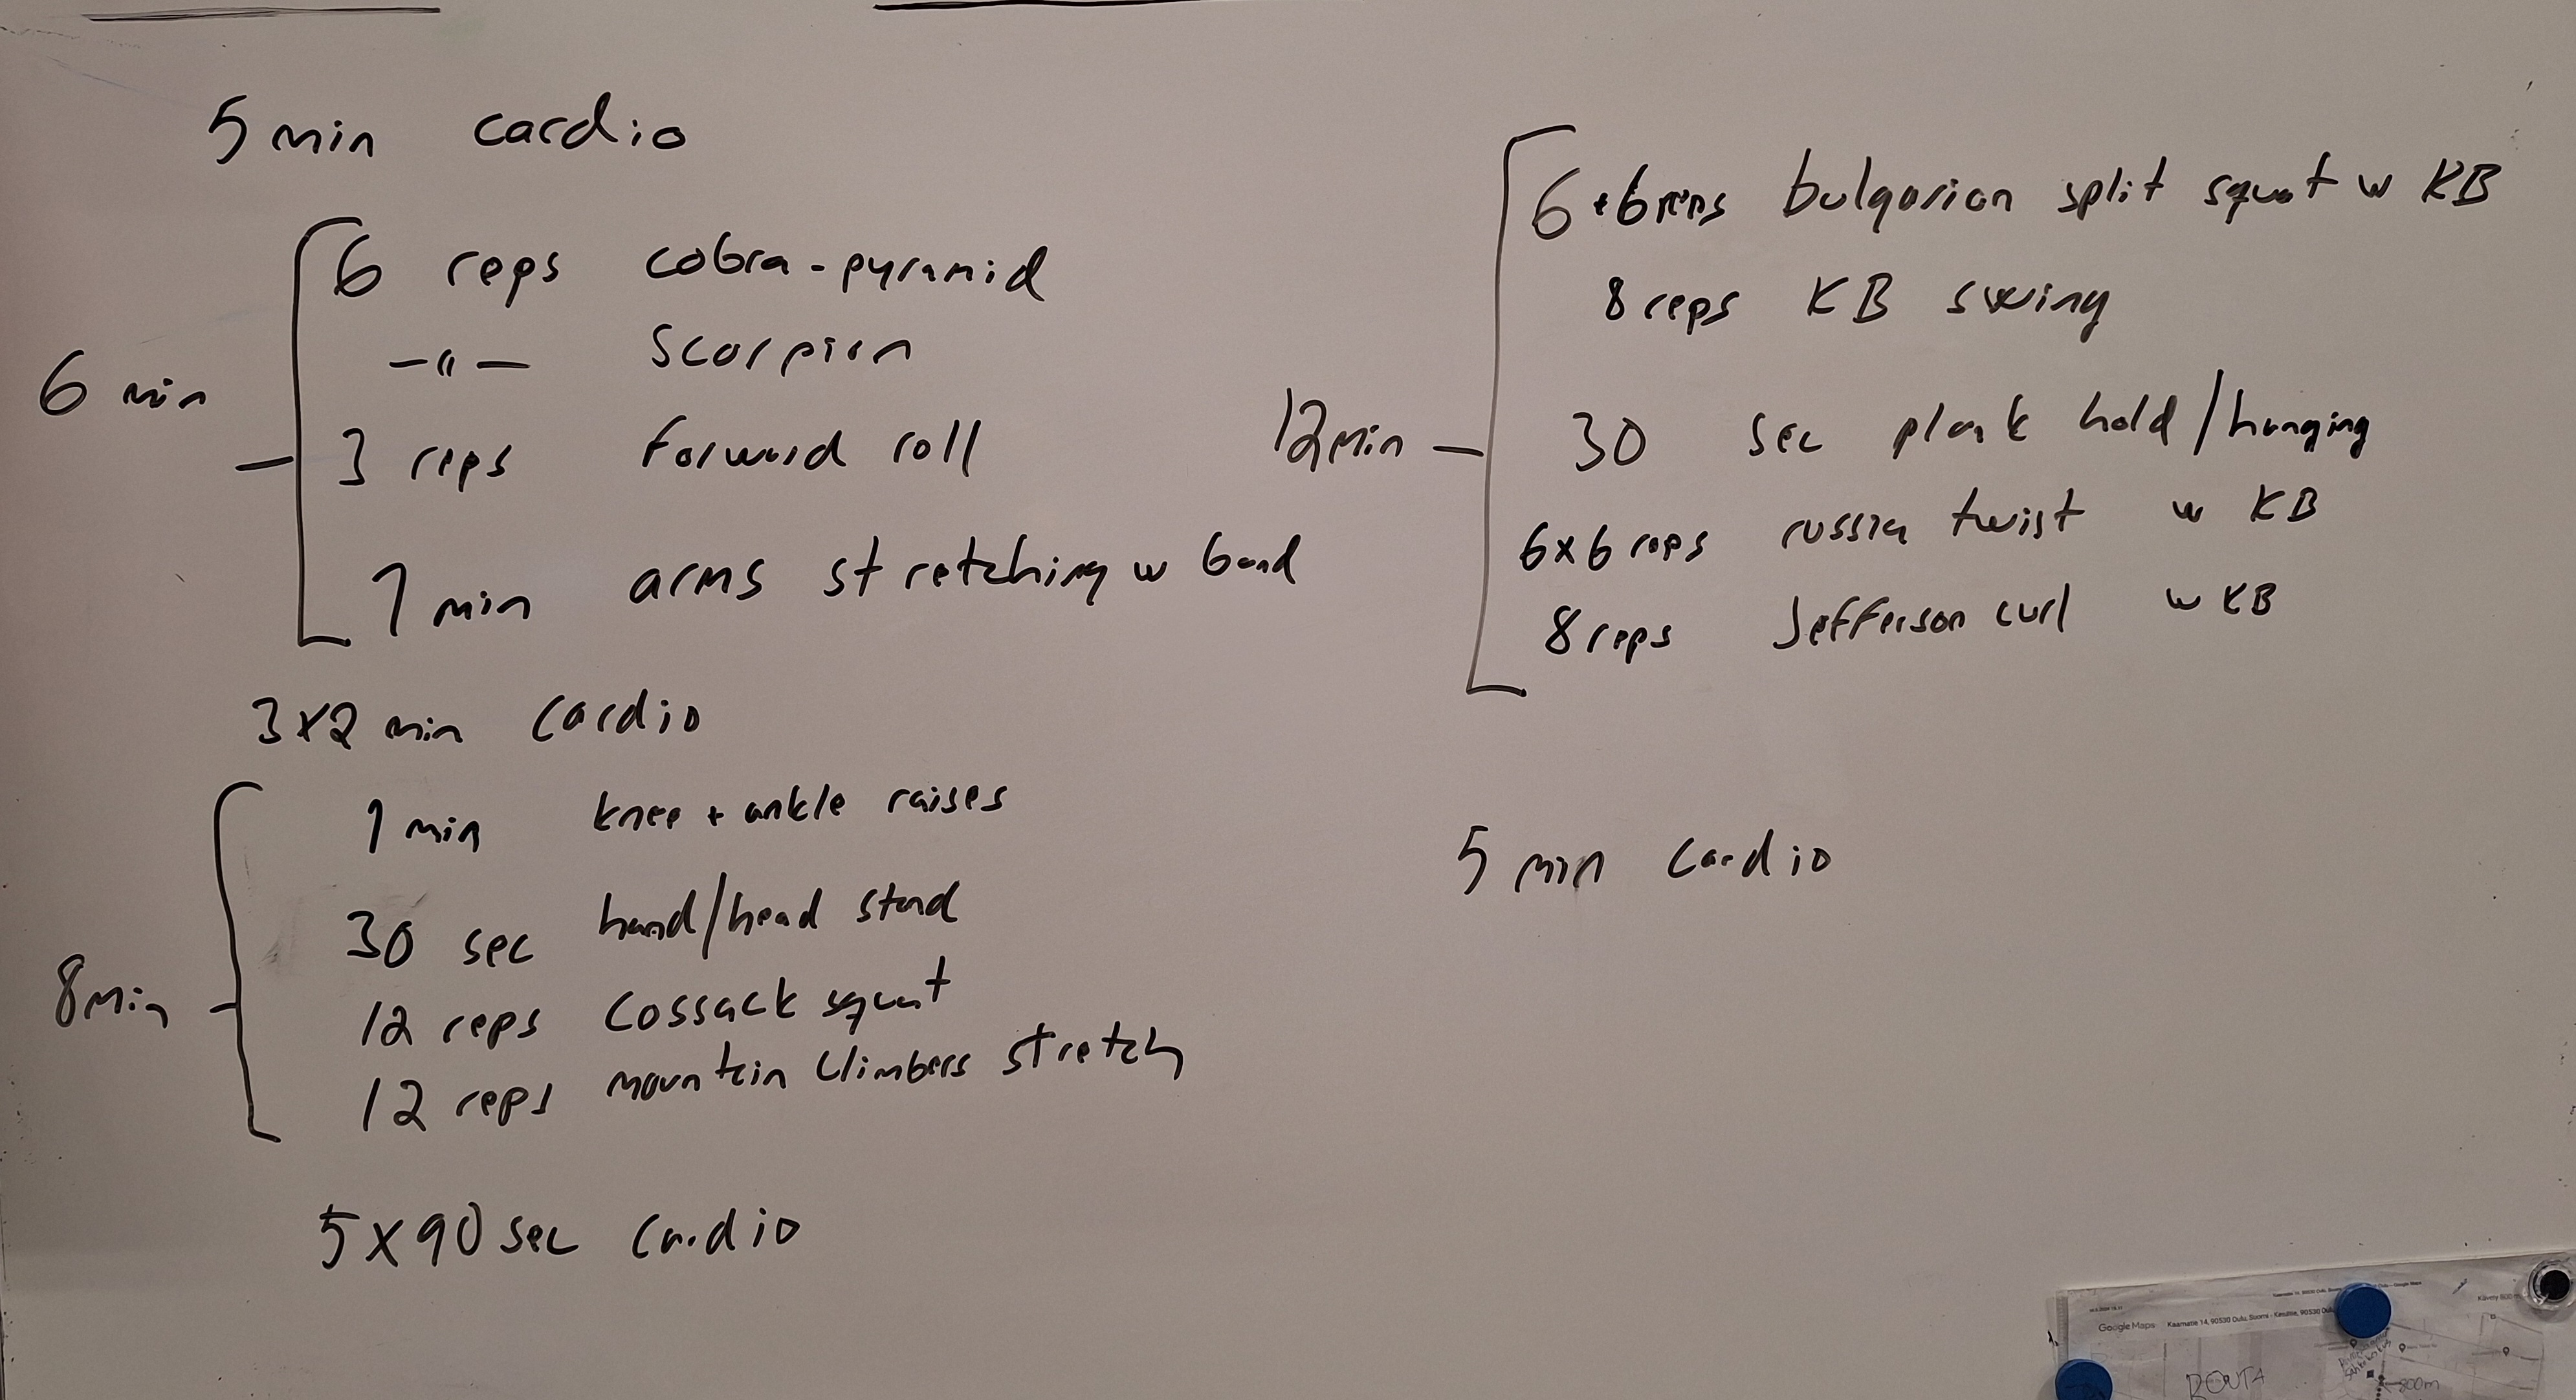 5 min cardio
6 min
6 reps cobra-pyramid
-"- scorpion
3 reps forward roll
1 min arms stretching w band
3x2 min cardio
8min
1 min knee + ankle raises
30 sec hand/head stand
12 reps cossack squat
12 reps mountain climbers stretch
5x90 sec cardio
12min
6+6reps bulgarian split squat w KB
8 reps KB swing
30 sec plank hold/hanging
6x6 reps russia twist w KB
8 reps Jefferson curl w KB
5 min cardio
Google Maps Kaarnatie 14, 90530 Oulu, Suomi - Kävely 800
ROUTA
800m